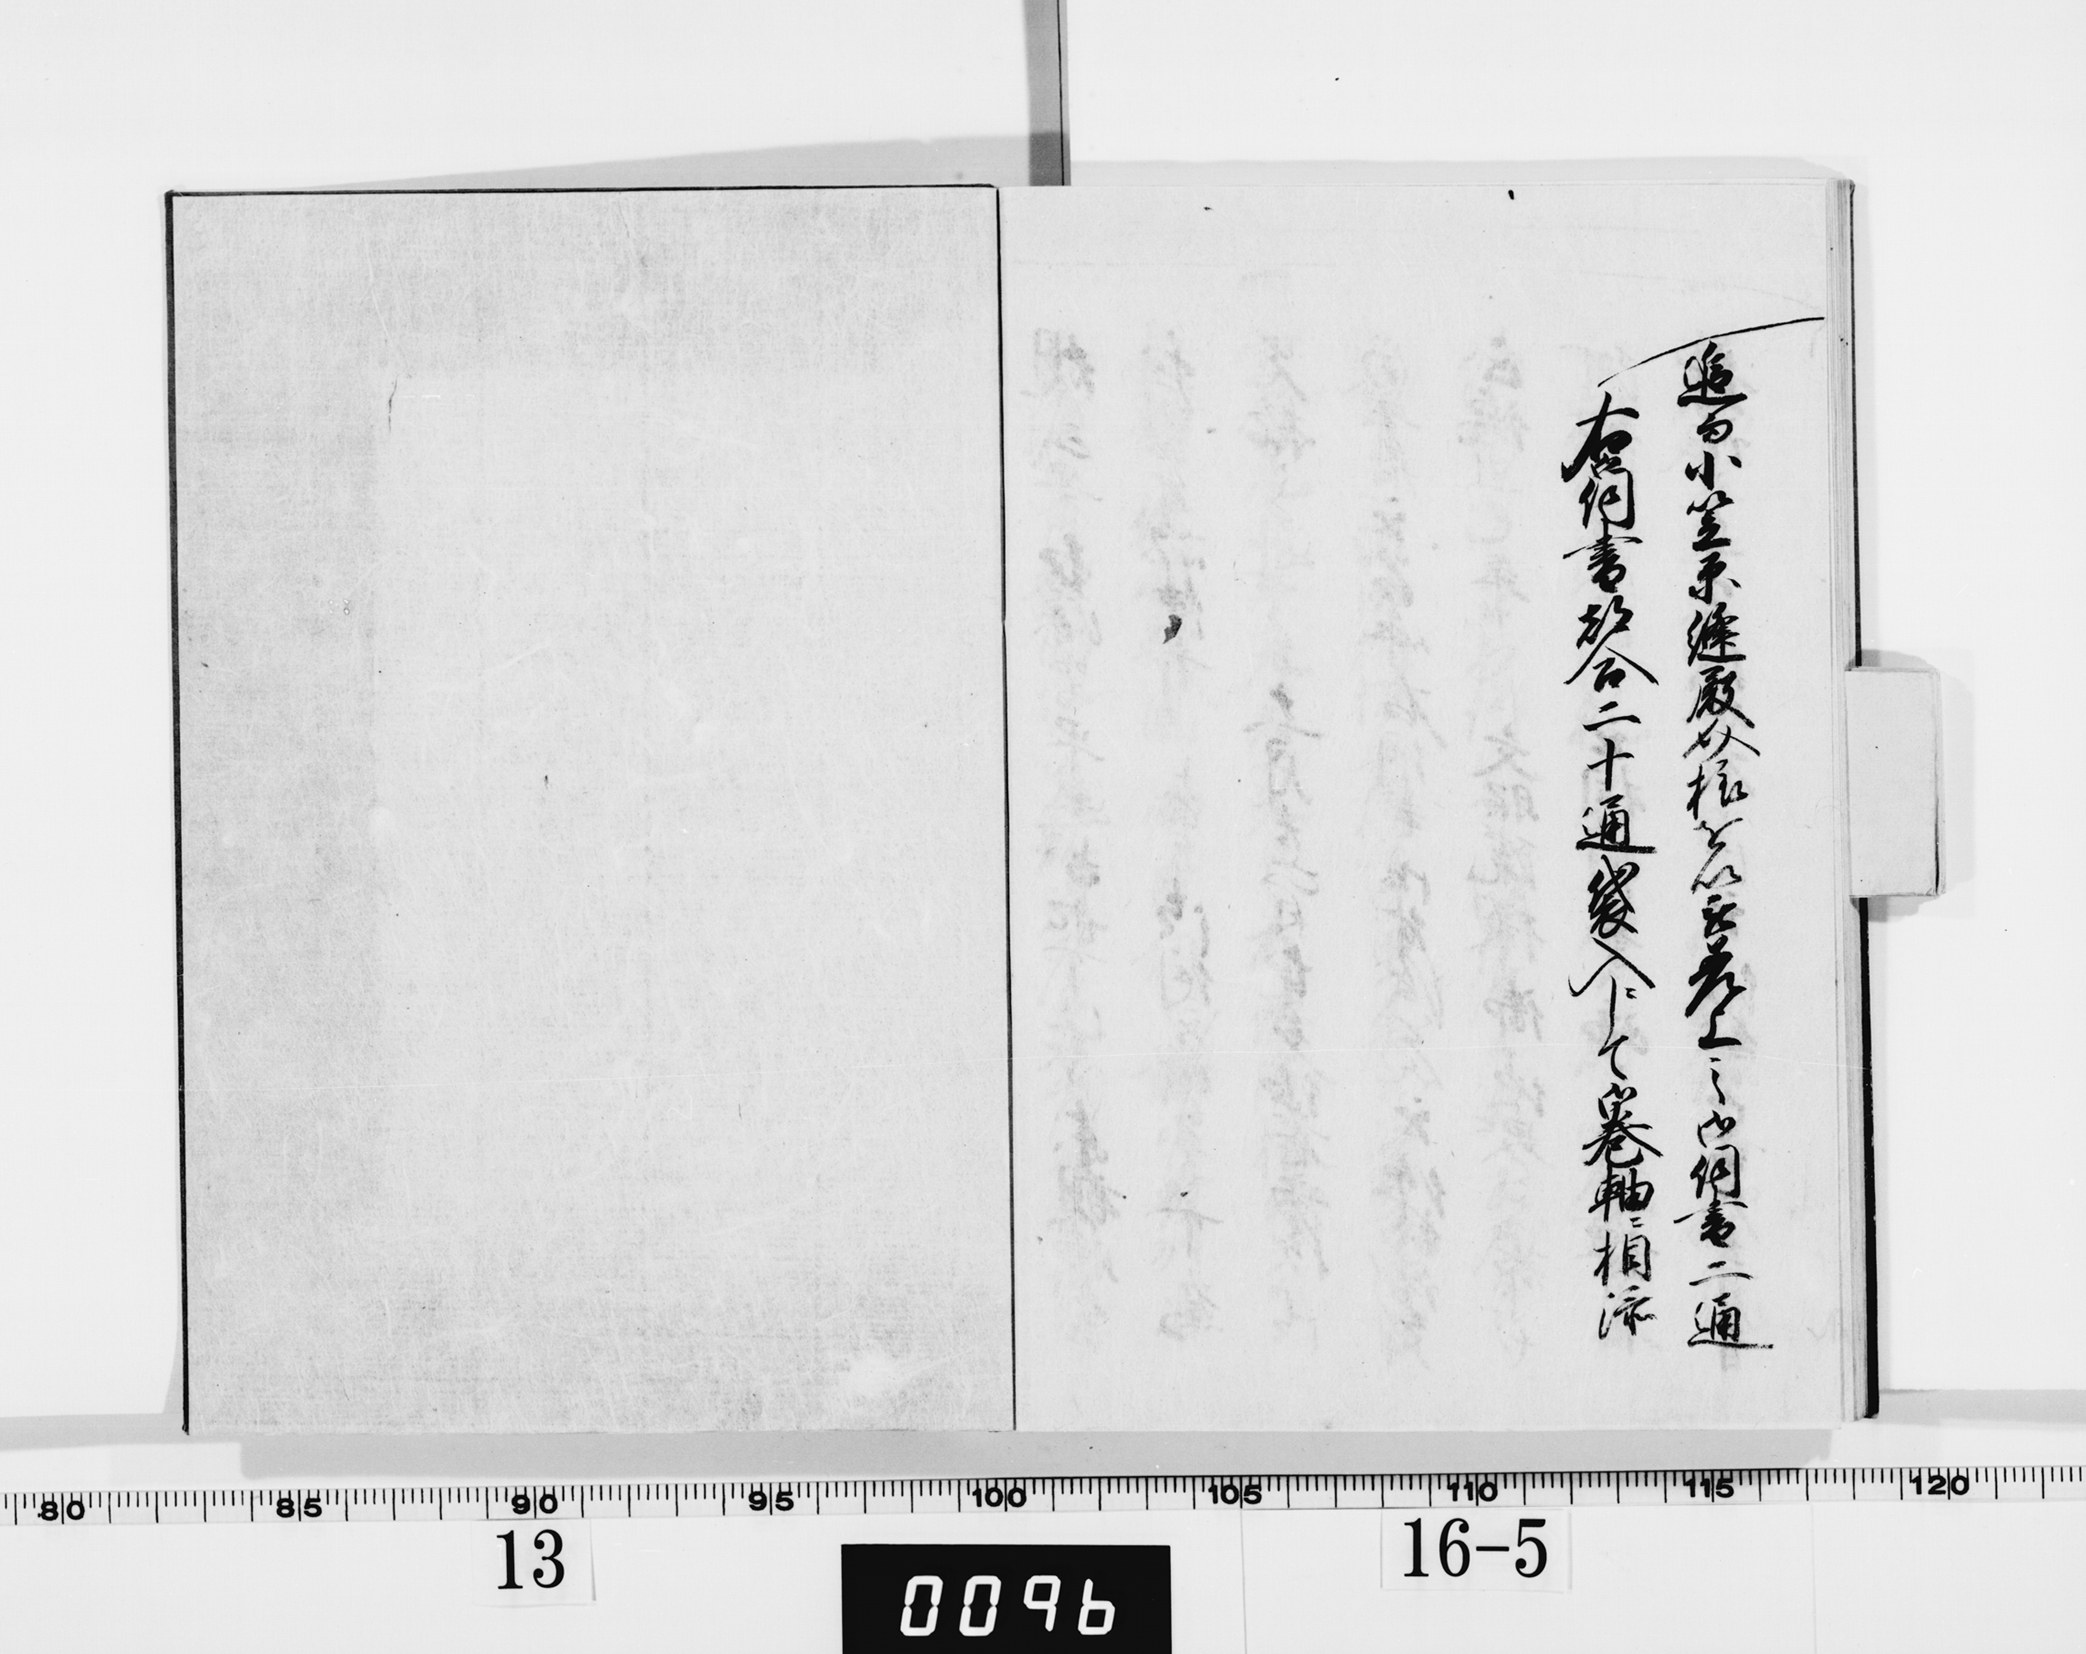 追而小笠原縫殿様を以被差上之御伺書二通
右御伺書都合二十通袋入ニして御巻軸ニ相添
80 85 90 95 100 105 110 115 120
13
16-5
0096